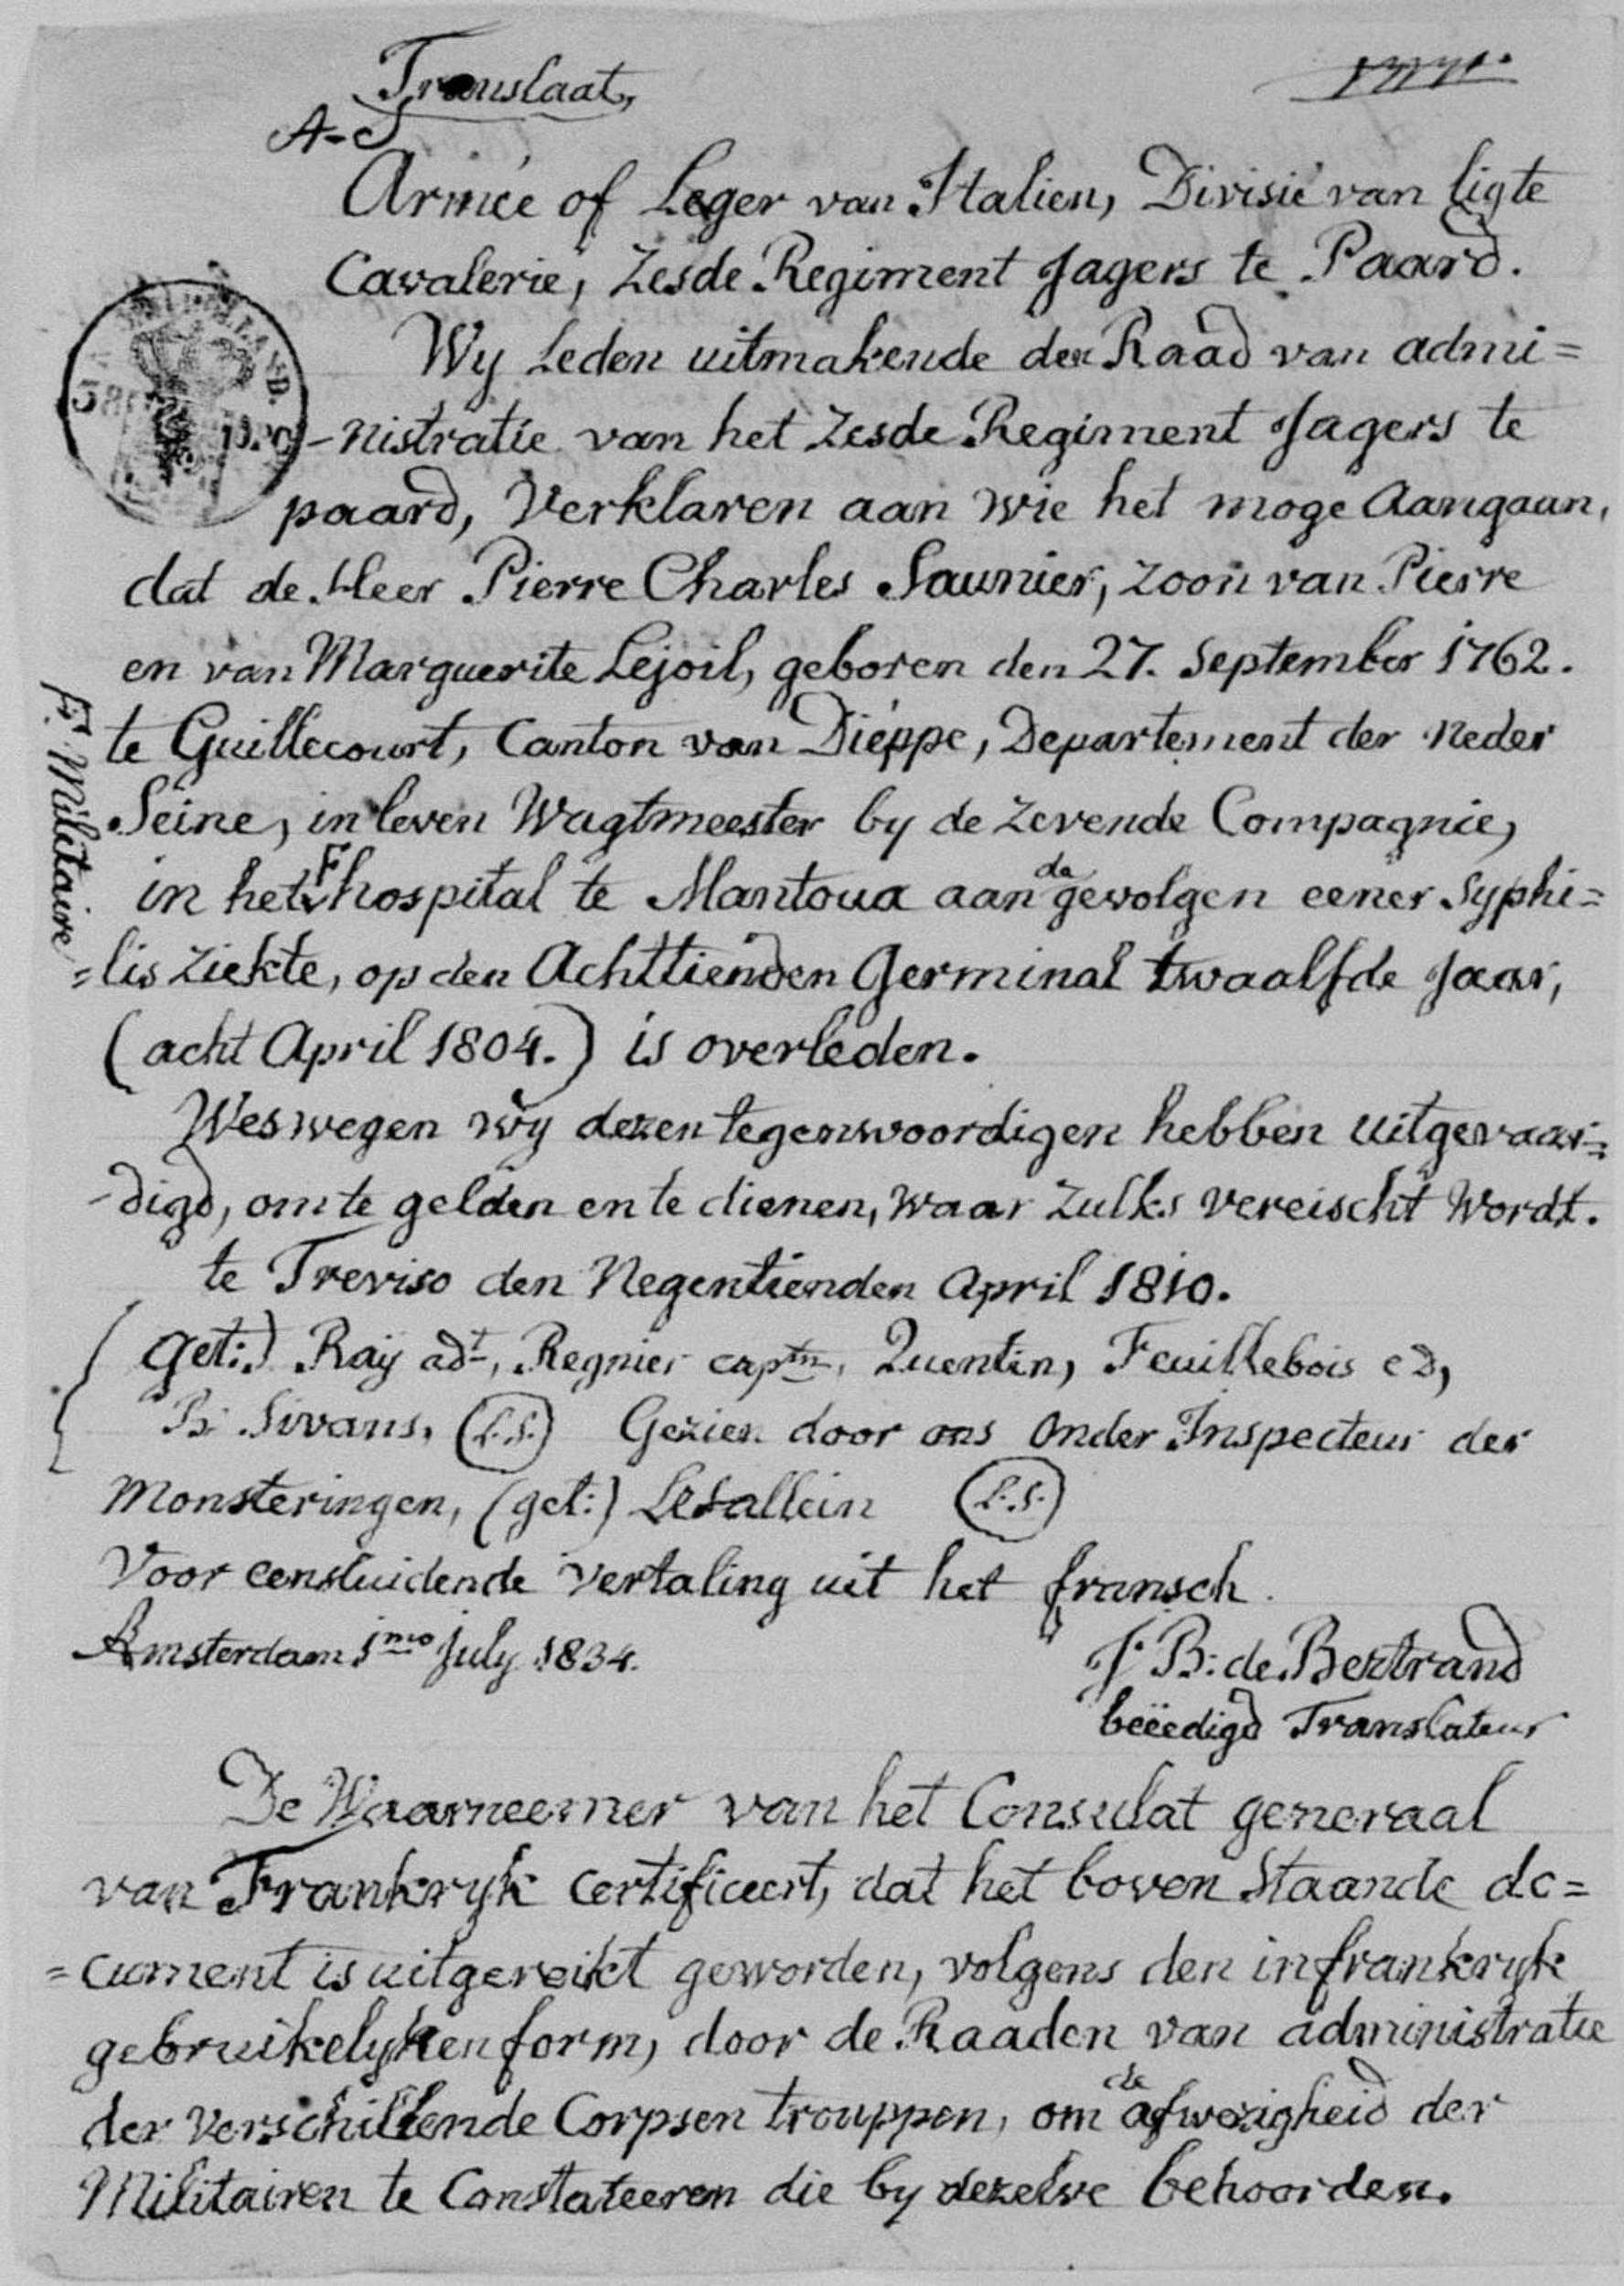 Translaat,
A-S
Armée of Leger van Italien, Divisie van ligte
Cavalerie, Zesde Regiment Jagers te Paard.
Wy Leden uitmakende den Raad van admi=
-nistratie van het Zesde Regiment Jagers te
paard, Verklaren aan wie het moge Aangaan,
dat de Heer Pierre Charles Saunier, zoon van Pierre
en van Marguerite Lejoil, geboren den 27. September 1762.
te Guillecourt, Canton van Diéppe, Departement der Neder
Seine, in leven Wagtmeester by de zevende Compagnie,
in het F hospital te Mantoua aan de gevolgen eener Syphi=
=lis ziekte, op den Achttienden Germinal twaalfde Jaar,
(acht April 1804.) is overleden.
Weswegen wy dezen tegenwoordigen hebben uitgevaar=
-digd, om te gelden en te dienen, waar zulks vereischt wordt.
te Treviso den Negentienden April 1810.
Get:) Ray adt, Regnier captn, Quentin, Feuillebois ed,
Br Sivans, (L.S.) Gezien door ons Onder Inspecteur der
Monsteringen, (get:) Lesallein (L.S.)
Voor eensluidende Vertaling uit het fransch.
Amsterdam 1mo July 1834.
J. B: de Bertrand
beëedigd Translateur
De Waarneemer van het Consulat generaal
van Frankryk Certificeert, dat het boven Staande do=
=cument is uitgereikt geworden, volgens den in frankryk
gebruikelyken form, door de Raaden van administratie
der verschillende Corpsen trouppen, om de afwezigheid der
Militairen te Constateeren die by dezelve behoorden.
F Militaire